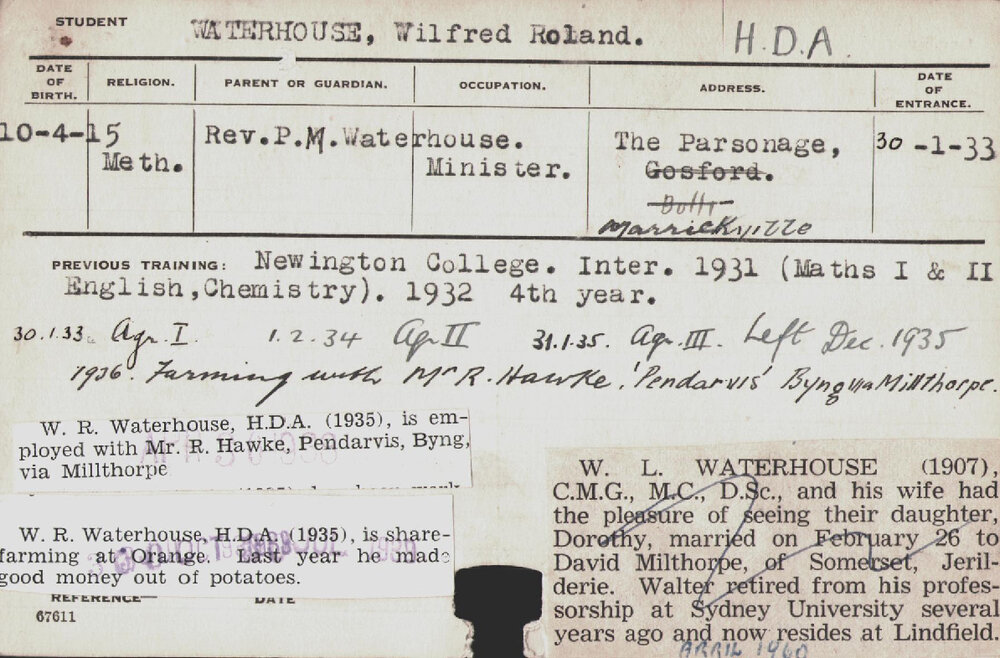 STUDENT
WATERHOUSE, Wilfred Roland.
H.D.A.
DATE OF BIRTH.
RELIGION.
PARENT OR GUARDIAN.
OCCUPATION.
ADDRESS.
DATE OF ENTRANCE.
10-4-15
Meth.
Rev.P.M.Waterhouse.
Minister.
The Parsonage,
Gosford.
Marrickville
30-1-33
PREVIOUS TRAINING: Newington College. Inter. 1931 (Maths I & II
English,Chemistry). 1932 4th year.
30.1.33. Agr. I. 1.2.34 Agr II 31.1.35. Agr. III. Left Dec. 1935
1936. Farming with Mr R. Hawke, 'Pendarvis' Byng via Millthorpe.
W. R. Waterhouse, H.D.A. (1935), is em-
ployed with Mr. R. Hawke, Pendarvis, Byng,
via Millthorpe
W. R. Waterhouse, H.D.A. (1935), is share-
farming at Orange. Last year he made
good money out of potatoes.
REFERENCE
DATE
67611
W. L. WATERHOUSE (1907),
C.M.G., M.C., D.Sc., and his wife had
the pleasure of seeing their daughter,
Dorothy, married on February 26 to
David Milthorpe, of Somerset, Jeril-
derie. Walter retired from his profes-
sorship at Sydney University several
years ago and now resides at Lindfield.
APRIL 1960